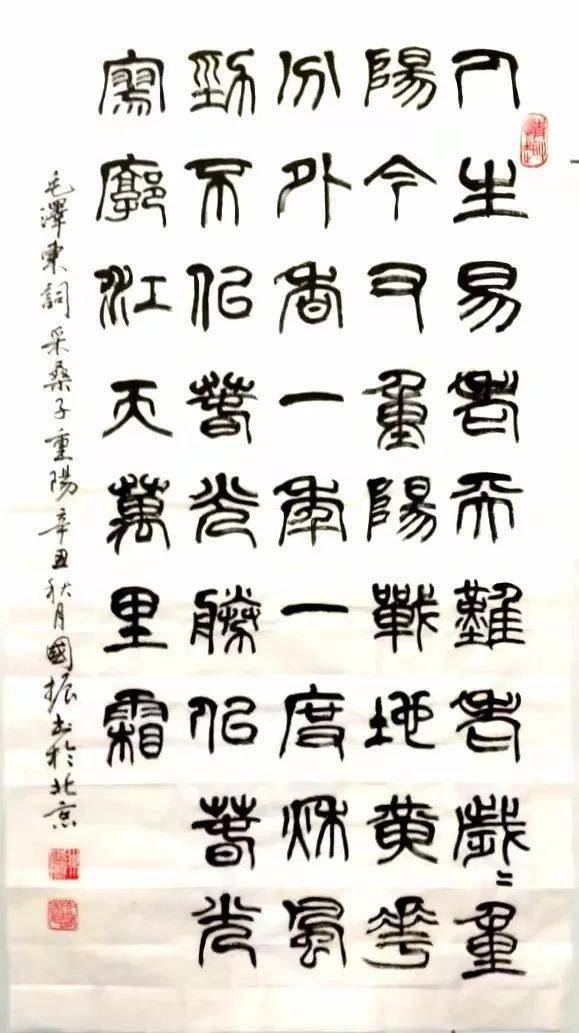 人生易老天難老歲〻重
陽今又重陽戰地黃花
份外香一年一度秋風
勁不似春光勝似春光
寥廓江天萬里霜
毛澤東詞采桑子重陽辛丑秋月國振書於北京